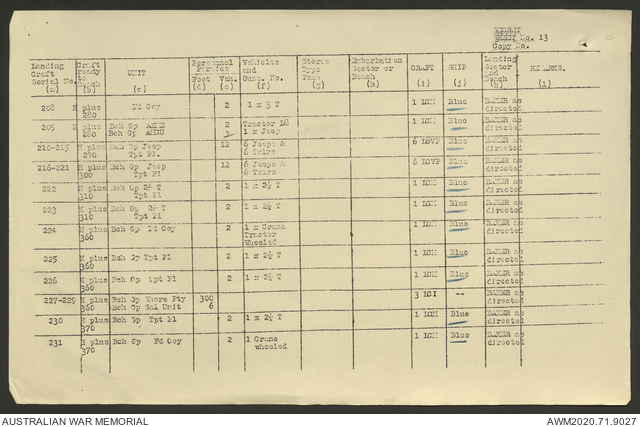 SHEET No. 13
Copy No.
Landing Craft Serial No. (a) Craft ready to Beach (b) UNIT (c) Personnel Parties Foot (d) Veh. (e) Vehicles and Guns. No. (f) Stores Type Tons (g) Embarkation Sector or Beach (h) CRAFT (i) SHIP (j) Landing Sector and Beach (k) REMARKS. (l)
208 H plus 280 Fd Coy 2 1 x 3 T 1 LCM Blue BAKER as directed
209 H plus 280 Bch Gp Bch Gp 2 Tractor D8 1 x Jeep 1 LCM Blue BAKER as directed
210-215 H plus 290 Bch Gp Jeep Tpt Pl. 12 6 Jeeps & 6 Trlrs 6 LCVP Blue BAKER as directed
216-221 H plus 300 Bch Gp Jeep Tpt Pl 12 6 Jeeps & 6 Trlrs 6 LCVP Blue BAKER as directed
222 H plus 310 Bch Gp 2½ T Tpt Pl 2 1 x 2½ T 1 LCM Blue BAKER as directed
223 H plus 310 Bch Gp 2½ T Tpt Pl 2 1 x 2½ T 1 LCM Blue BAKER as directed
224 H plus 360 Bch Gp Fd Coy 2 1 x Crane Tractor Wheeled 1 LCM Blue BAKER as directed
225 H plus 360 Bch Gp Tpt Pl 2 1 x 2½ T 1 LCM Blue BAKER as directed
226 H plus 360 Bch Gp Tpt Pl 2 1 x 2½ T 1 LCM Blue BAKER as directed
227-229 H plus 360 Bch Gp Shore Pty Bch Gp Sal Unit 300 6 3 LCI -- BAKER as directed
230 H plus 370 Bch Gp Tpt Pl 2 1 x 2½ T 1 LCM Blue BAKER as directed
231 H plus 370 Bch Gp Fd Coy 2 1 Crane wheeled 1 LCM Blue BAKER as directed
AUSTRALIAN WAR MEMORIAL
AWM2020.71.9027